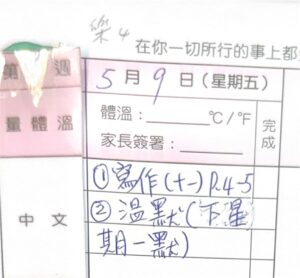 樂4
在你一切所行的事上都
週
5月9日(星期五)
量體溫
體溫:
℃/℉
完成
家長簽署:
中文
①寫作(十一)P.4-5
②溫默(下星
期一默)